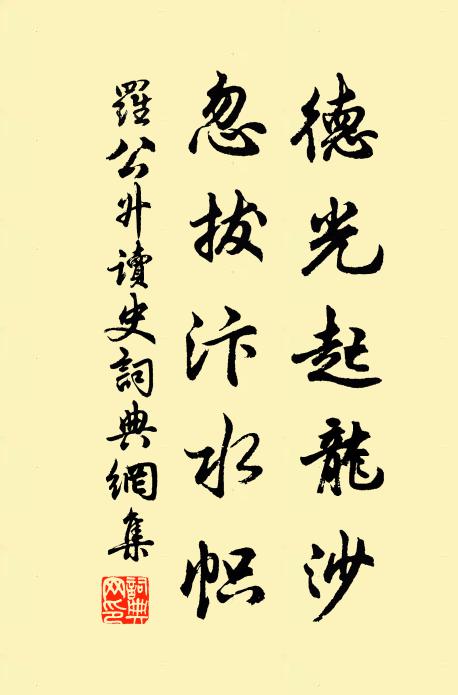 德光起龍沙
忽拔汴水帜
羅公升讀史詞典網集
詞典網印